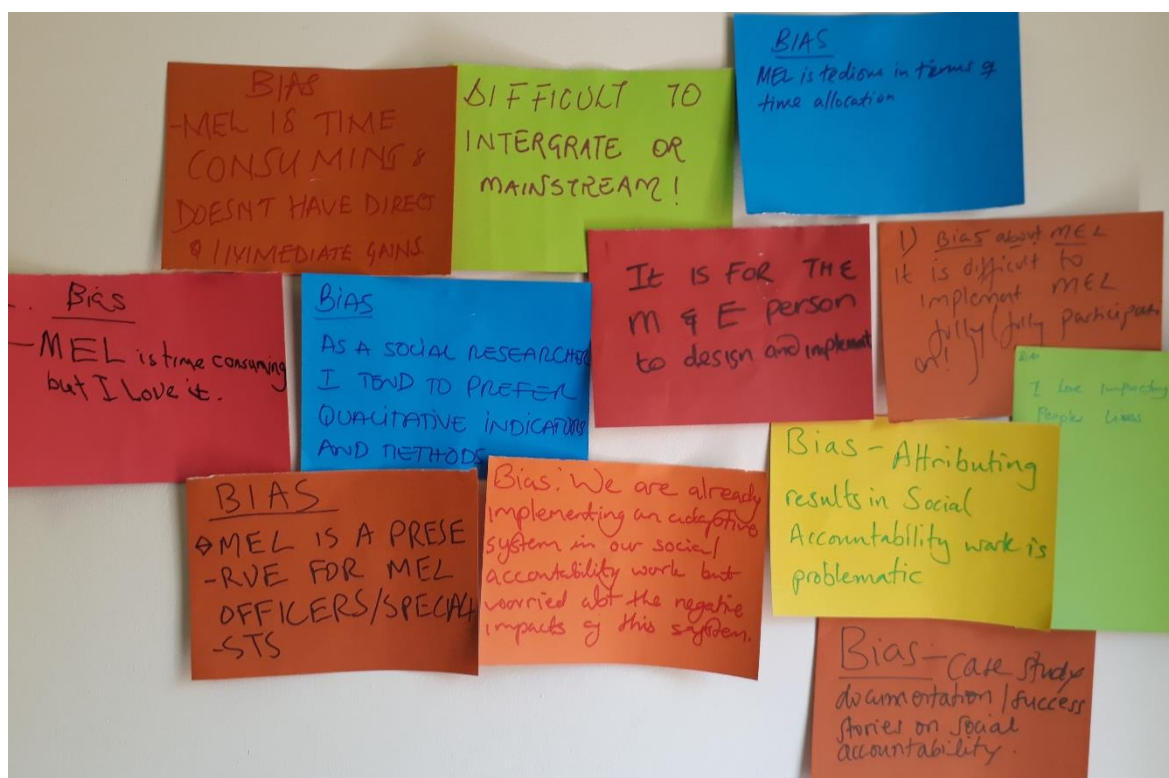 BIAS
-MEL IS TIME
CONSUMING &
DOESN'T HAVE DIRECT
& / IMMEDIATE GAINS
DIFFICULT TO
INTERGRATE OR
MAINSTREAM!
BIAS
MEL is tedious in terms of
time allocation
Bias
- MEL is time consuming
but I Love it.
BIAS
AS A SOCIAL RESEARCHER
I TEND TO PREFER
QUALITATIVE INDICATORS
AND METHODS
It IS FOR THE
M & E person
to design and implement
1) Bias about MEL
It is difficult to
implement MEL
fully/fully participati
on!
BIAS
I Love Impacting
People Lives
BIAS
MEL IS A PRESE
-RVE FOR MEL
OFFICERS/SPECIALI
-STS
Bias: We are already
implementing an adaptive
system in our social
accountability work but
worried abt the negative
impacts of this system.
Bias - Attributing
results in Social
Accountability work is
problematic
Bias - Case study
documentation/success
stories on social
accountability.